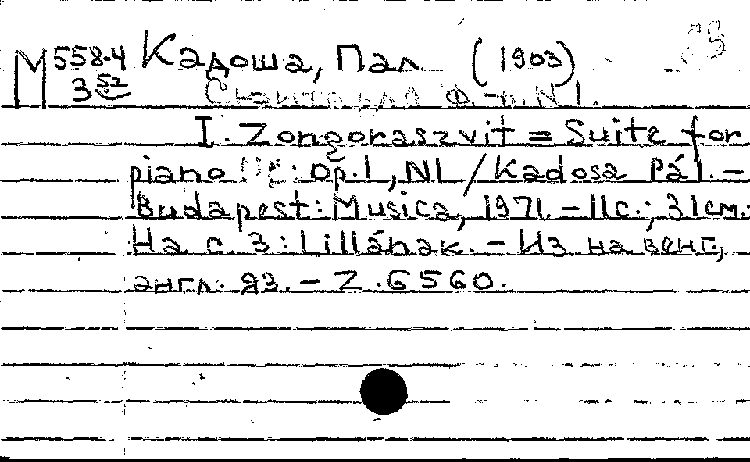 М 558-4 Кадоша, Пал (1903)
3 52 Сюита для ф-п. N 1.
I. Zongoraszvit = Suite for
piano : Op. 1, N1 / Kadosa Pál. –
Budapest: Musica, 1971. – 11 с.; 31 см.
На с. 3: Lillának. – Из на венг.,
англ. яз. – Z. 6560.